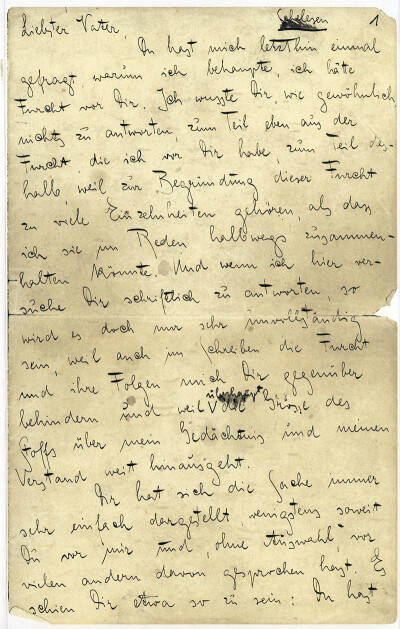 Schelesen 1
Liebster Vater,
Du hast mich letzthin einmal
gefragt warum ich behaupte, ich hätte
Furcht vor Dir. Ich wusste Dir, wie gewöhnlich,
nichts zu antworten, zum Teil eben aus der
Furcht, die ich vor Dir habe, zum Teil des-
halb, weil zur Begründung dieser Furcht
zu viele Einzelnheiten gehören, als dass
ich sie im Reden halbwegs zusammen-
halten könnte. Und wenn ich hier ver-
suche Dir schriftlich zu antworten, so
wird es doch nur sehr unvollständig
sein, weil auch im Schreiben die Furcht
und ihre Folgen mich Dir gegenüber
behindern und weil die Grösse des
Stoffs über mein Gedächtnis und meinen
Verstand weit hinausgeht.
Dir hat sich die Sache immer
sehr einfach dargestellt, wenigstens soweit
Du vor mir und, ohne Auswahl, vor
vielen andern davon gesprochen hast. Es
schien Dir etwa so zu sein: Du hast